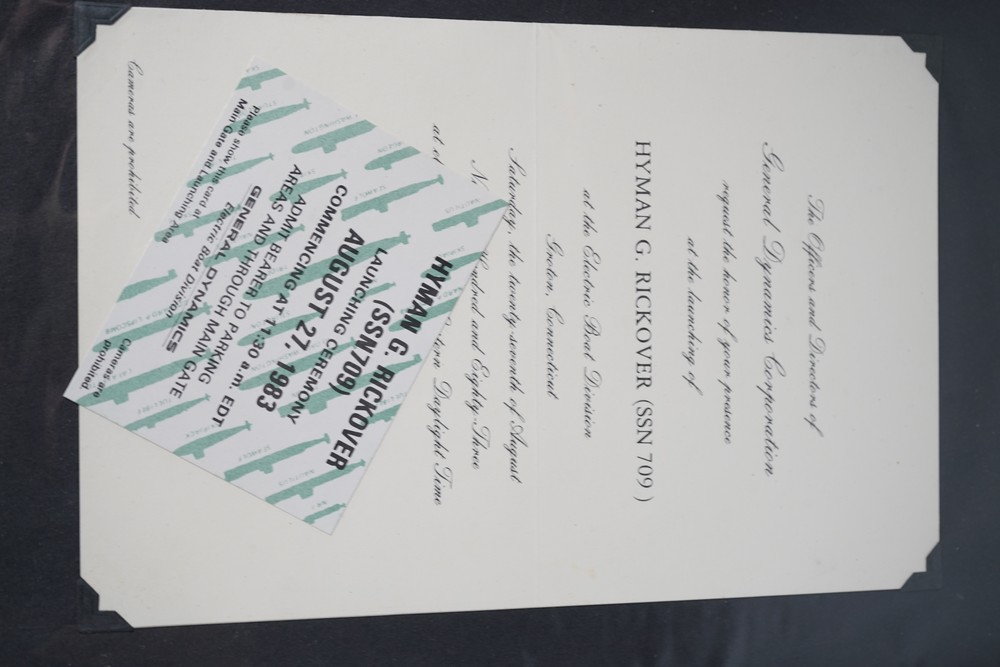 The Officers and Directors of
General Dynamics Corporation
request the honor of your presence
at the launching of
HYMAN G. RICKOVER (SSN 709)
at the Electric Boat Division
Groton, Connecticut
Saturday, the twenty-seventh of August
and Eighty-Three
at Daylight Time
Cameras are prohibited
HYMAN G. RICKOVER
(SSN709)
LAUNCHING CEREMONY
AUGUST 27, 1983
COMMENCING AT 11:30 a.m. EDT
ADMIT BEARER TO PARKING
AREAS AND THROUGH MAIN GATE
GENERAL DYNAMICS
Electric Boat Division
Please show this card at
Main Gate and Launching Area
Cameras are
prohibited.